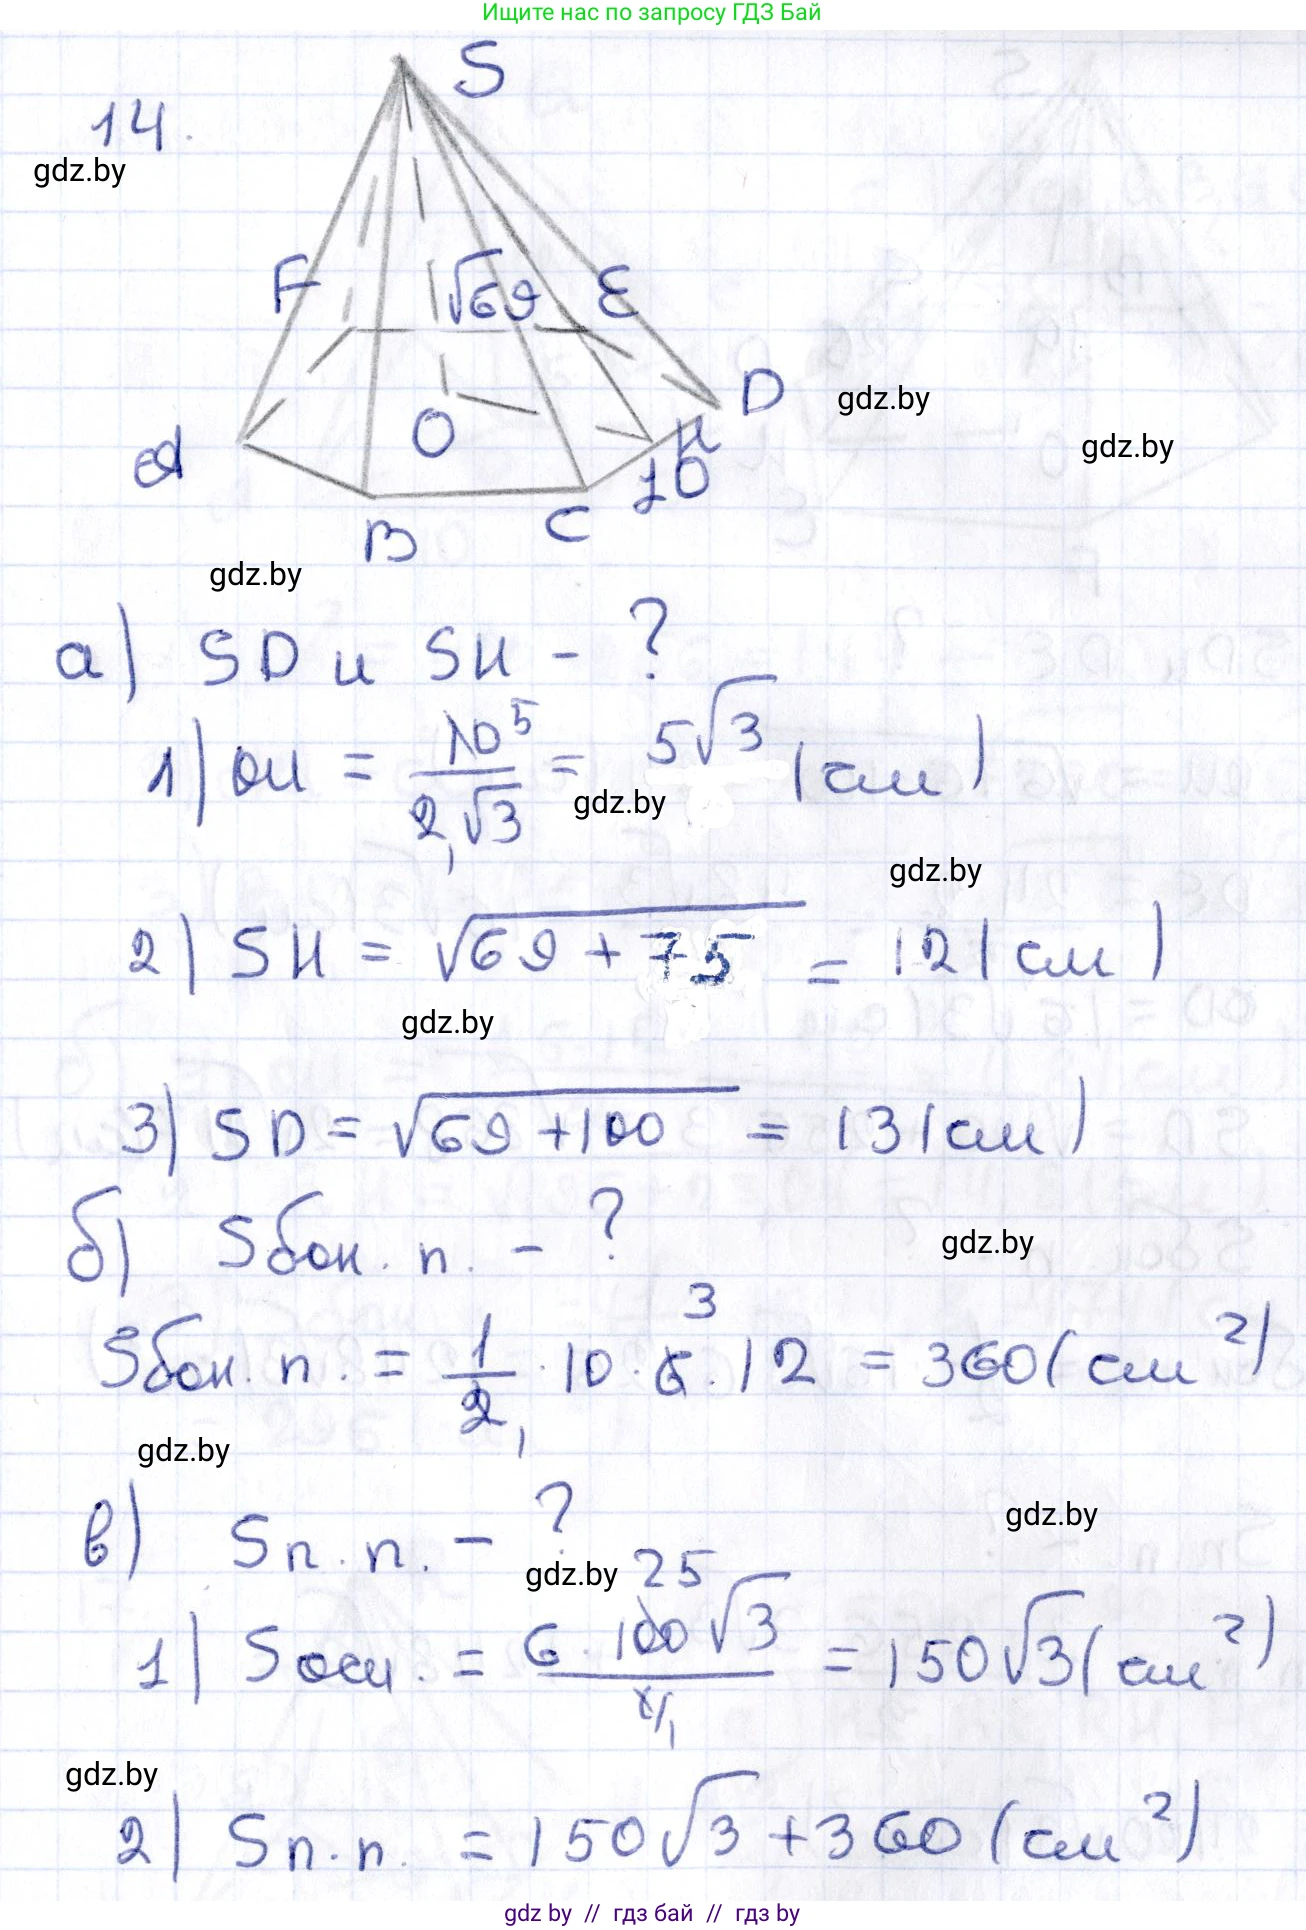 Ищите нас по запросу ГДЗ Бай
14.
gdz.by
S
F
√69
E
D
gdz.by
gdz.by
O
A
H
10
B
C
gdz.by
а) SD и SH - ?
1) OH = 10⁵ / 2√3 = 5√3 (см)
gdz.by
gdz.by
2) SH = √69 + 75 = 12 (см)
gdz.by
3) SD = √69 + 100 = 13 (см)
б) Sбок. п. - ?
gdz.by
Sбок. п. = 1/2 · 10 · 6³ · 12 = 360 (см²)
gdz.by
в) Sп.п. - ?
gdz.by
gdz.by
25
1) Sосн. = 6 · 100√3 / 4 = 150√3 (см²)
gdz.by
2) Sп.п. = 150√3 + 360 (см²)
gdz by // гдз бай // гдз by